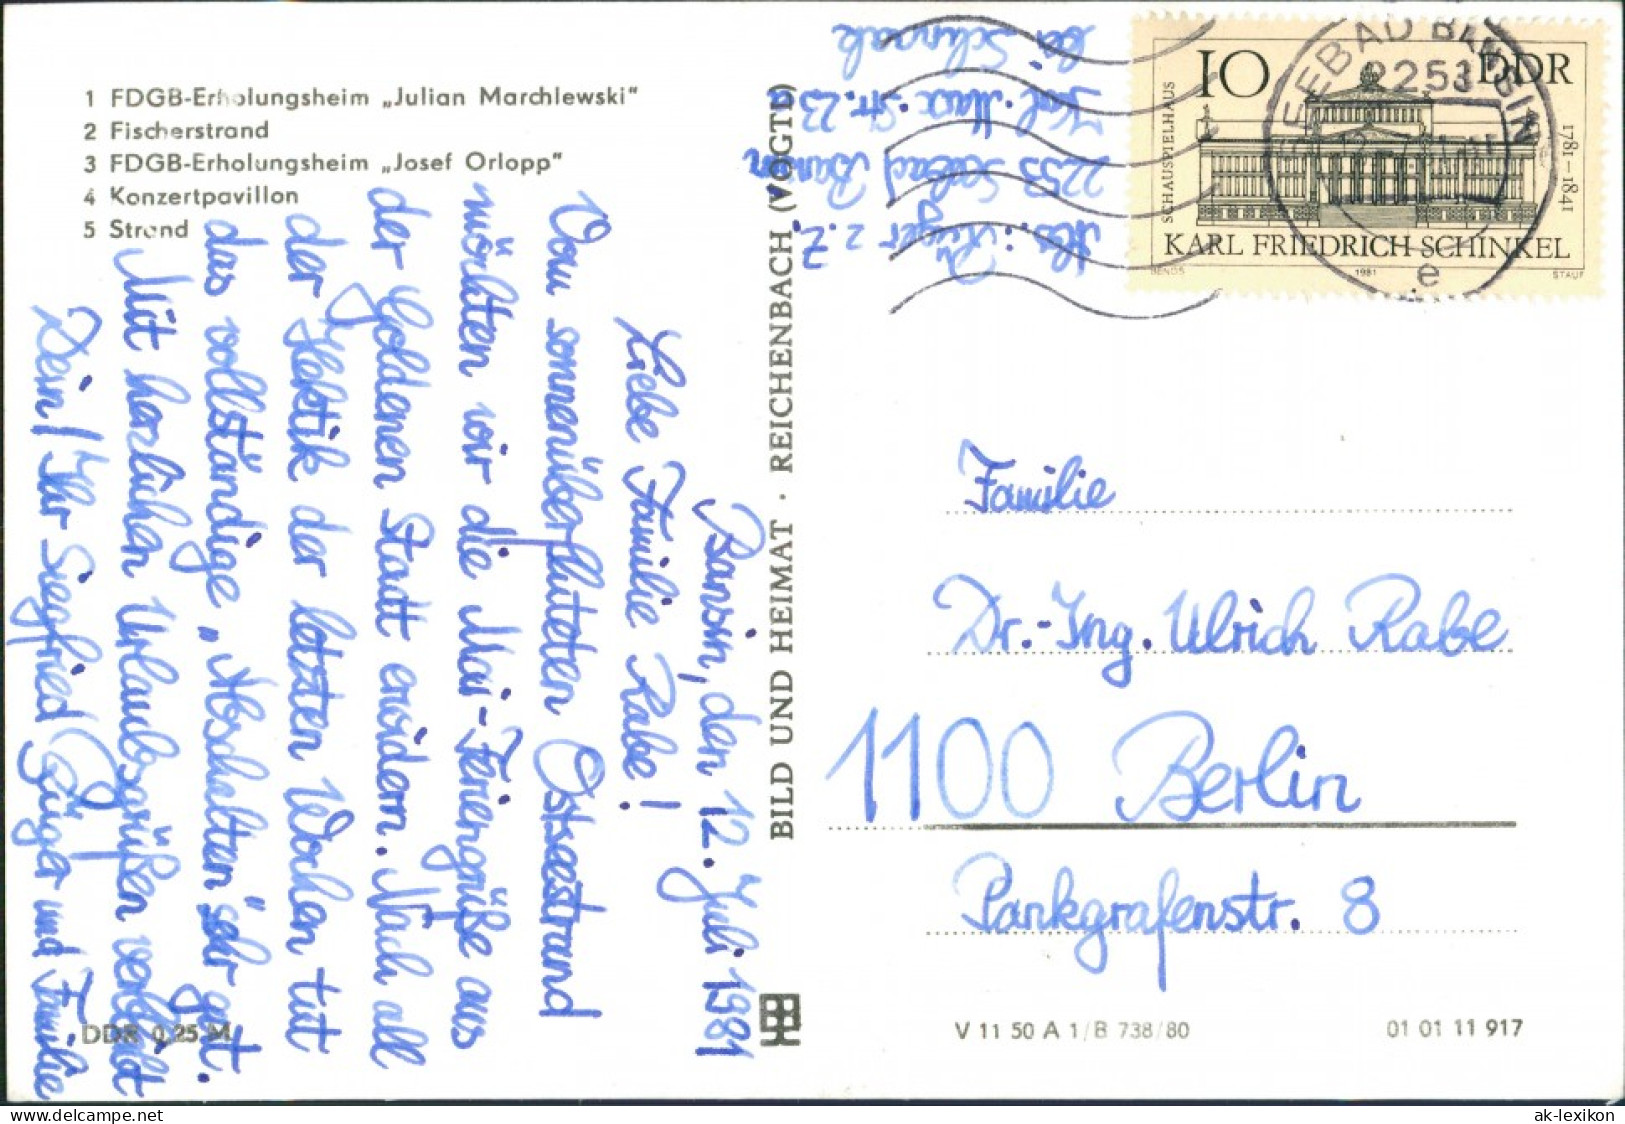 1 FDGB-Erholungsheim „Julian Marchlewski“
2 Fischerstrand
3 FDGB-Erholungsheim „Josef Orlopp“
4 Konzertpavillon
5 Strand
Bansin, den 12. Juli 1981
Liebe Familie Rabe!
Vom sonnenüberfluteten Ostseestrand
möchten wir die Mai-Feriengrüße aus
der Goldenen Stadt erwidern. Nach all
der Hektik der letzten Wochen tut
das vollständige „Abschalten“ sehr gut.
Mit herzlichen Urlaubsgrüßen verbleibt
Dein/Ihr Siegfried Krüger und Familie
DDR 0,25 M
BILD UND HEIMAT · REICHENBACH (VOGTL)
Abs.: Krüger z. Z.
2253 Seebad Bansin
Karl-Marx-Str. 23
bei Schwank
10 DDR
SCHAUSPIELHAUS
1781–1841
KARL FRIEDRICH SCHINKEL
BENDS 1981 STAUF
SEEBAD BANSIN
2253
e
Familie
Dr.-Ing. Ulrich Rabe
1100 Berlin
Parkgrafenstr. 8
V 11 50 A 1/B 738/80
01 01 11 917
ak-lexikon.com